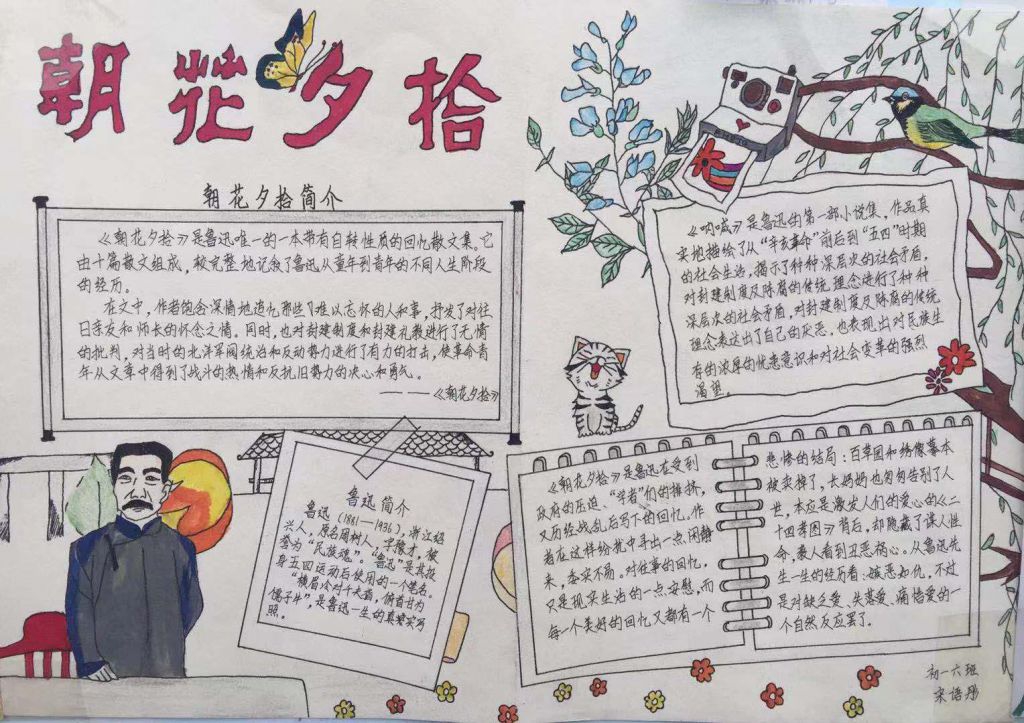 朝花夕拾
朝花夕拾简介
《朝花夕拾》是鲁迅唯一的一本带有自转性质的回忆散文集,它
由十篇散文组成,较完整地记叙了鲁迅从童年到青年的不同人生阶段
的经历。
在文中,作者饱含深情地追忆那些难以忘怀的人和事,抒发了对往
日亲友和师长的怀念之情。同时,也对封建制度和封建礼教进行了无情
的批判,对当时的北洋军阀统治和反动势力进行了有力的打击,使革命青
年从文章中得到了战斗的热情和反抗旧势力的决心和勇气。
———《朝花夕拾》
《呐喊》是鲁迅的第一部小说集,作品真
实地描绘了从“辛亥革命”前后到“五四”时期
的社会生活,揭示了种种深层次的社会矛盾,
对封建制度及陈腐的传统理念进行了种种
深层次的社会矛盾,对封建制度及陈腐的传统
理念表达出了自己的厌恶,也表现出对民族生
存的浓厚的忧患意识和对社会变革的强烈
渴望。
鲁迅简介
鲁迅(1881—1936),浙江绍
兴人,原名周树人,字豫才,被
誉为“民族魂”。“鲁迅”是其投
身五四运动后使用的一个笔名。
“横眉冷对千夫指,俯首甘为
孺子牛”,是鲁迅一生的真实写
照。
《朝花夕拾》是鲁迅在受到
政府的压迫、“学者”们的排挤,
又历经战乱后写下的回忆,作
者在这样纷扰中寻出一点闲静
来,委实不易。对往事的回忆,
又是现实生活的一点安慰,而
每一个美好的回忆又都有一个
悲惨的结局:百草园和绣像摹本
被卖掉了,长妈妈也匆匆告别了人
世,本应是激发人们的爱心的《二
十四孝图》背后,却隐藏了谋人性
命,教人看到丑恶祸心。从鲁迅先
生一生的经历看:嫉恶如仇,不过
是对缺乏爱、失落爱、痛惜爱的一
个自然反应罢了。
初一六班
宋语彤